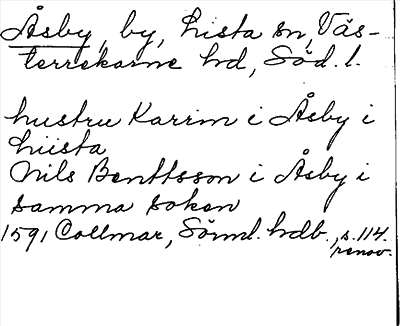 Åsby, by, Lista sn, Väs-
terrekarne hd, Söd. l.
hustru Karrin i Åsby i
Liista
Nils Benttsson i Åsby i
samma soken
1591 Collmar, Sörml. hdb. s. 114.
renov.